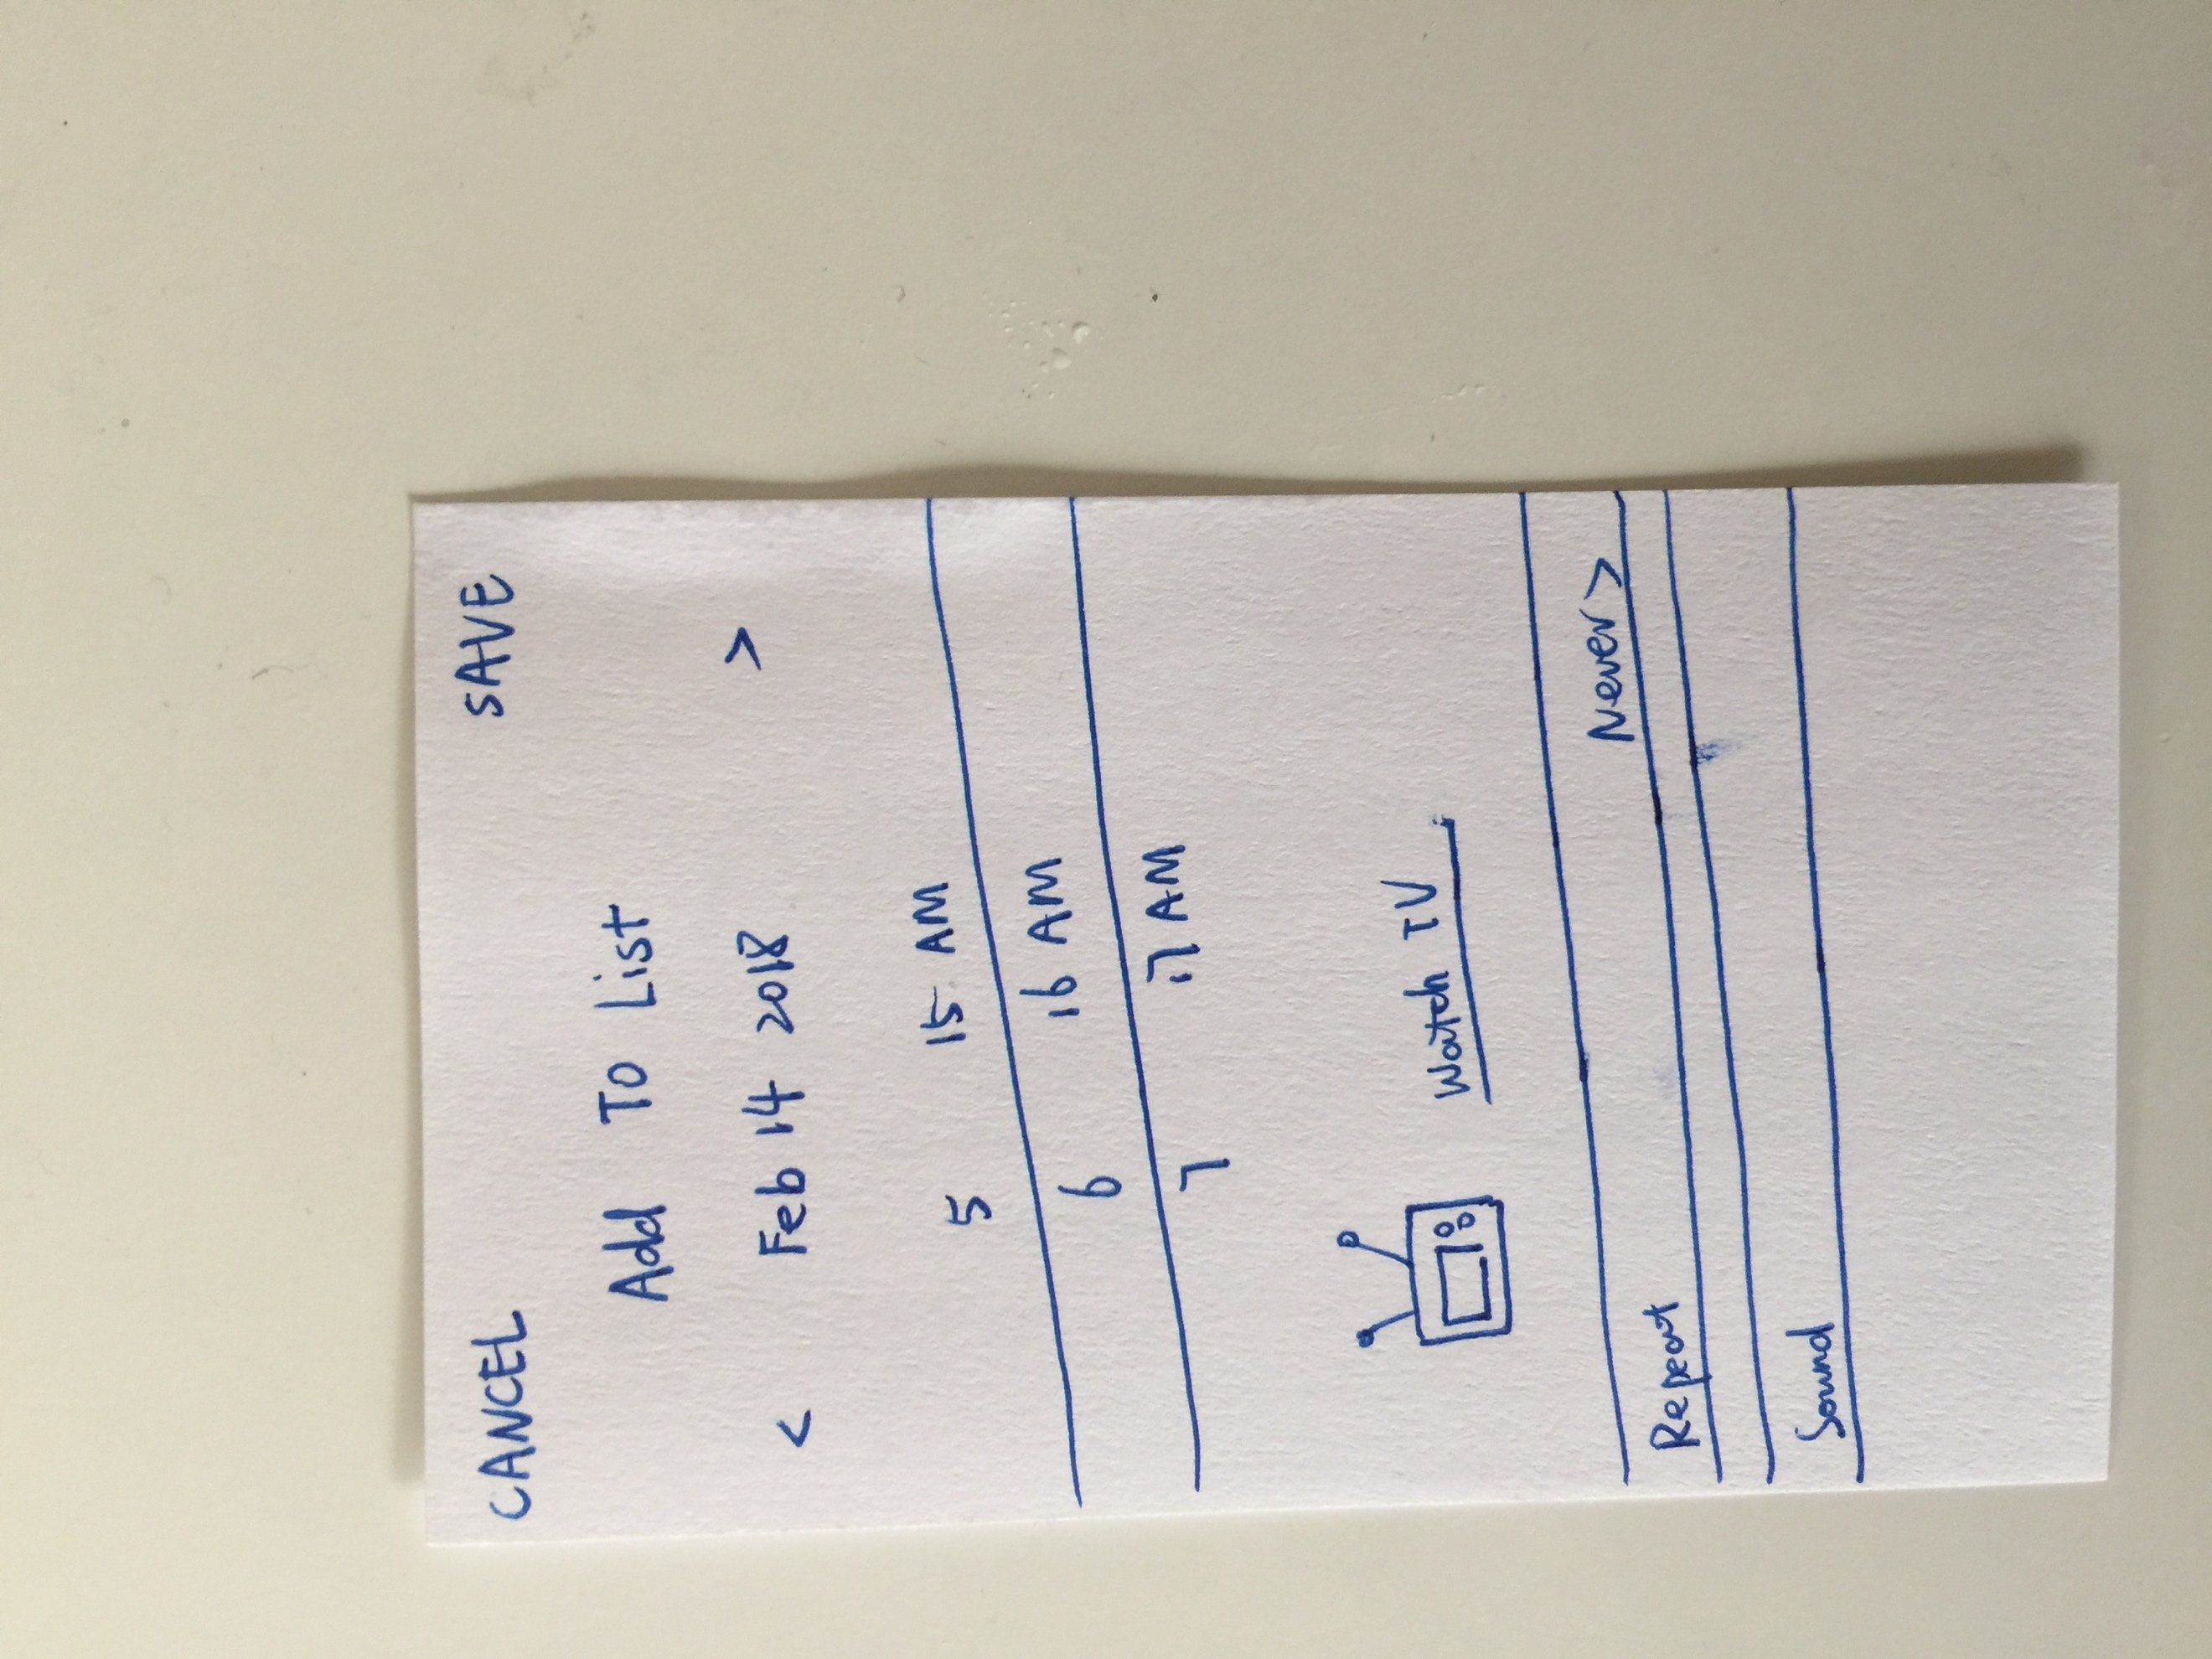 CANCEL SAVE
Add To List
< Feb 14 2018 >
5 15 AM
6 16 AM
7 17 AM
Watch TV
Repeat Never >
Sound